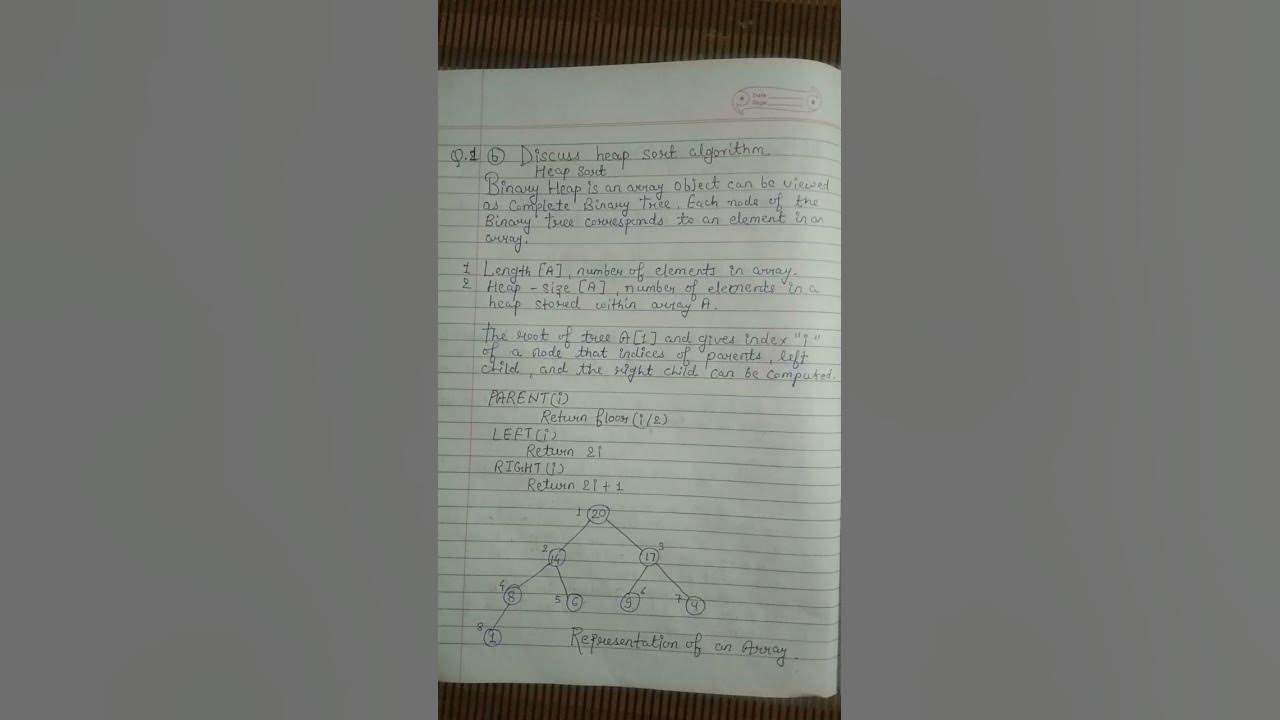 Date
Page
Q.1 (b) Discuss heap sort algorithm.
Heap sort
Binary Heap is an array object can be viewed
as Complete Binary Tree. Each node of the
Binary tree corresponds to an element in an
array.
1 Length [A], number of elements in array.
2 Heap - size [A], number of elements in a
heap stored within array A.
The root of tree A[1] and gives index "i"
of a node that indices of parents, left
child, and the right child can be computed.
PARENT(i)
Return floor(i/2)
LEFT(i)
Return 2i
RIGHT(i)
Return 2i + 1
1 20
2 14 17 3
4 8 5 6 9 6 7 4
8 1
Representation of an Array.